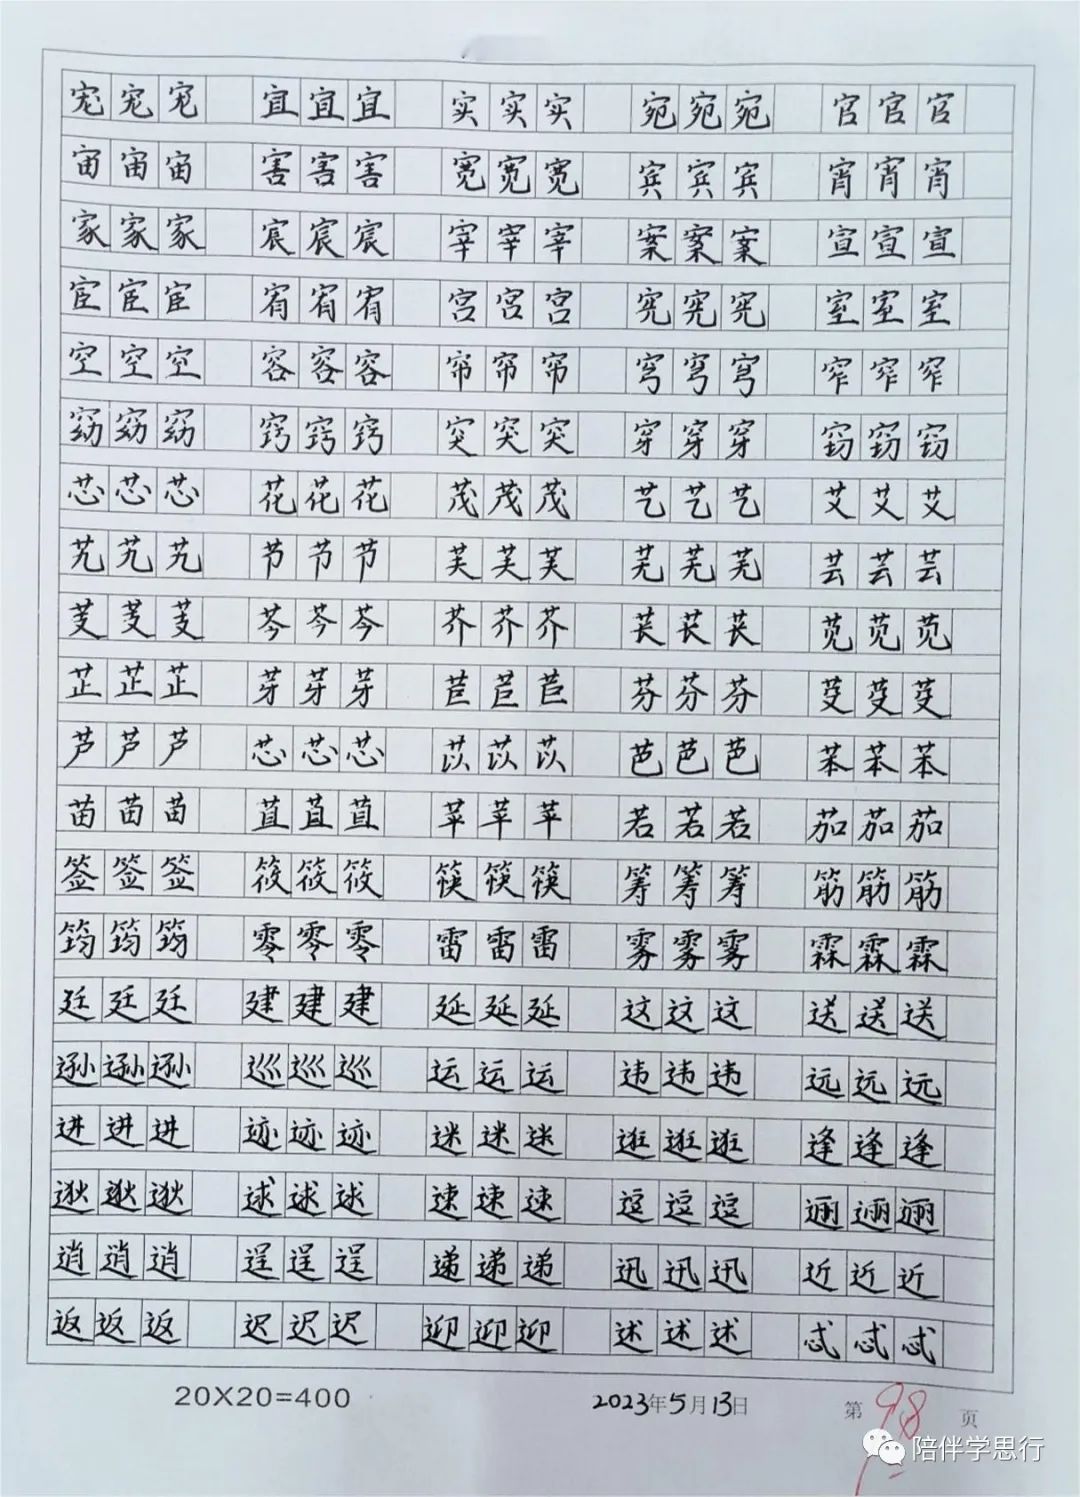 宠宠宠 宜宜宜 实实实 宛宛宛 官官官
宙宙宙 害害害 宽宽宽 宾宾宾 宵宵宵
家家家 宸宸宸 宰宰宰 案案案 宣宣宣
宦宦宦 宥宥宥 宫宫宫 宪宪宪 室室室
空空空 容容容 帘帘帘 穹穹穹 窄窄窄
窈窈窈 窍窍窍 突突突 穿穿穿 窃窃窃
芯芯芯 花花花 茂茂茂 艺艺艺 艾艾艾
艽艽艽 节节节 芙芙芙 芜芜芜 芸芸芸
芰芰芰 芩芩芩 芥芥芥 苌苌苌 苋苋苋
芷芷芷 芽芽芽 苣苣苣 芬芬芬 芟芟芟
芦芦芦 芯芯芯 苡苡苡 芭芭芭 苯苯苯
苗苗苗 苴苴苴 苹苹苹 若若若 茄茄茄
签签签 筱筱筱 筷筷筷 筹筹筹 筋筋筋
筠筠筠 零零零 雷雷雷 雾雾雾 霖霖霖
廷廷廷 建建建 延延延 这这这 送送送
逊逊逊 巡巡巡 运运运 违违违 远远远
进进进 迹迹迹 迷迷迷 逛逛逛 逢逢逢
逖逖逖 逑逑逑 速速速 逗逗逗 逦逦逦
逍逍逍 逞逞逞 递递递 迅迅迅 近近近
返返返 迟迟迟 迎迎迎 述述述 忒忒忒
20X20=400 2023年5月13日 第 页
98
陪伴学思行